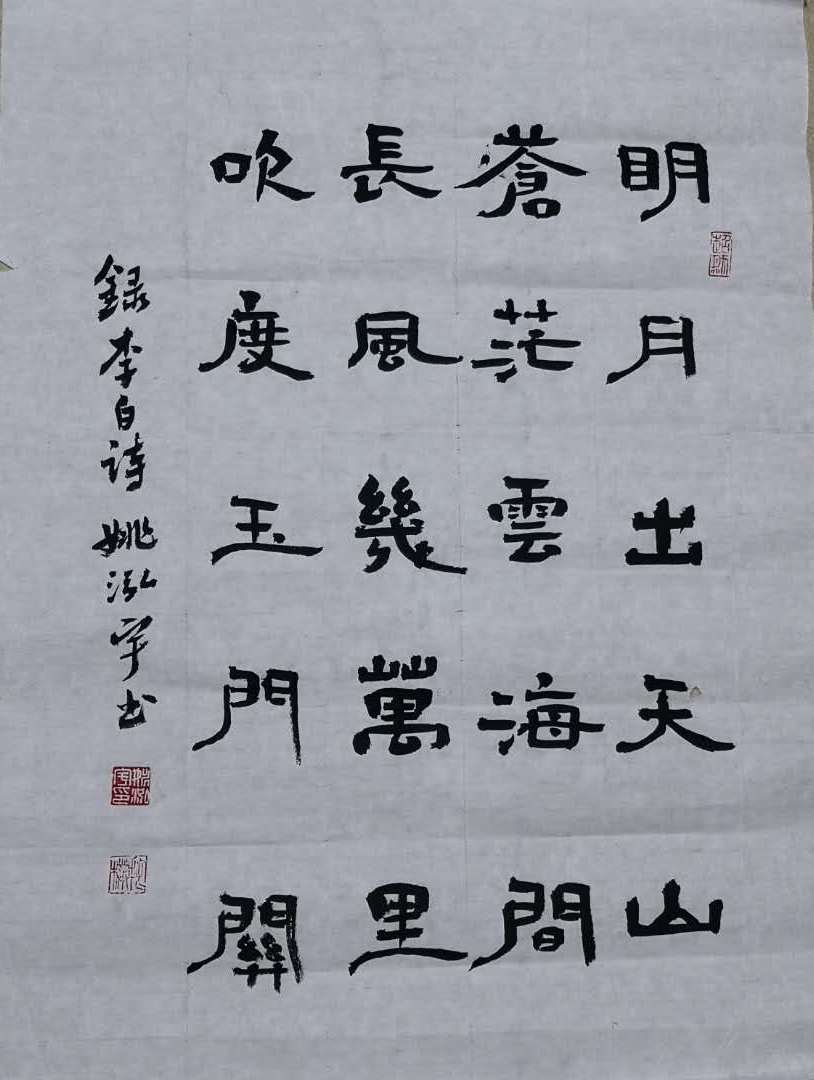 明月出天山
蒼茫雲海間
長風幾萬里
吹度玉門關
録李白詩 姚泓宇书